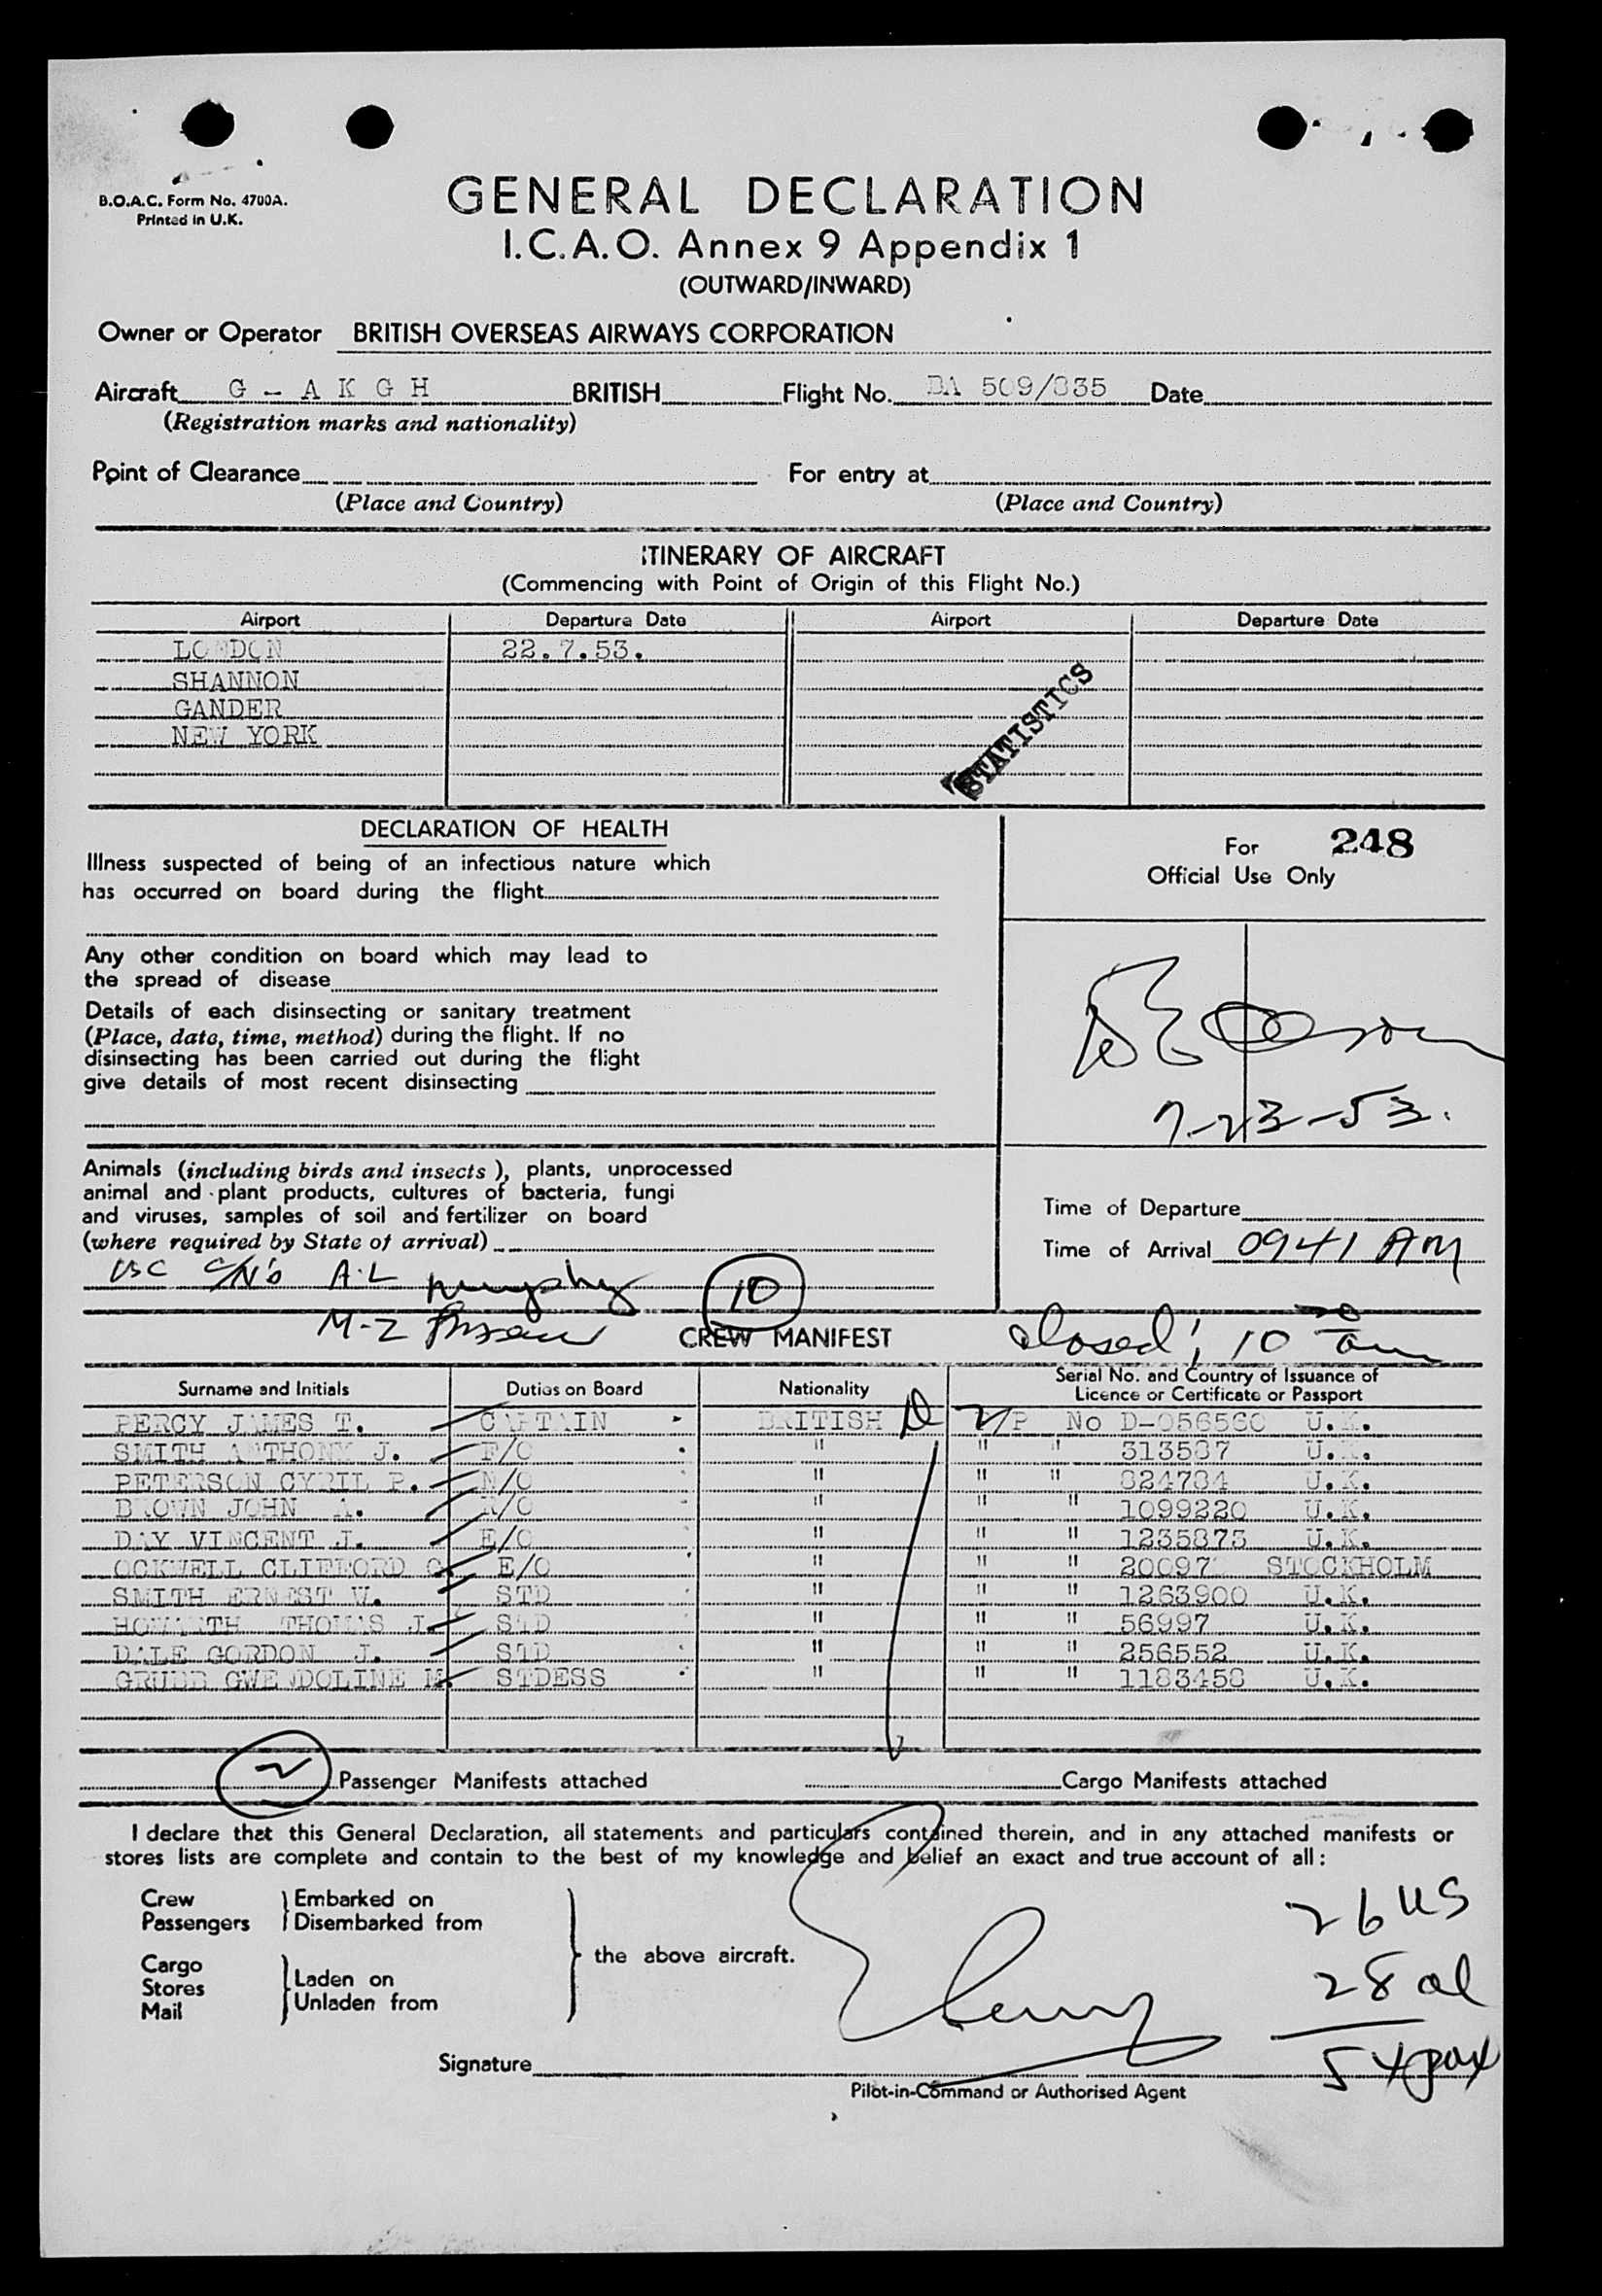 B.O.A.C. Form No. 4700A.
Printed in U.K.
GENERAL DECLARATION
I.C.A.O. Annex 9 Appendix 1
(OUTWARD/INWARD)
Owner or Operator BRITISH OVERSEAS AIRWAYS CORPORATION
Aircraft G - A K G H BRITISH Flight No. BA 509/335 Date
(Registration marks and nationality)
Point of Clearance For entry at
(Place and Country) (Place and Country)
ITINERARY OF AIRCRAFT
(Commencing with Point of Origin of this Flight No.)
Airport Departure Date Airport Departure Date
LONDON 22.7.53.
SHANNON
GANDER
NEW YORK
STATISTICS
DECLARATION OF HEALTH
Illness suspected of being of an infectious nature which
has occurred on board during the flight
For 248
Official Use Only
Any other condition on board which may lead to
the spread of disease
Details of each disinsecting or sanitary treatment
(Place, date, time, method) during the flight. If no
disinsecting has been carried out during the flight
give details of most recent disinsecting
7-23-53.
Animals (including birds and insects), plants, unprocessed
animal and plant products, cultures of bacteria, fungi
and viruses, samples of soil and fertilizer on board
(where required by State of arrival)
Time of Departure
Time of Arrival 0941 AM
USC C/N's A.L Murphy 10
M-Z
CREW MANIFEST
closed; 10 20 am
Surname and Initials Duties on Board Nationality Serial No. and Country of Issuance of
Licence or Certificate or Passport
PERCY JAMES T. CAPTAIN BRITISH D V/P No D-056560 U.K.
SMITH ANTHONY J. F/O " " " 313587 U.K.
PETERSON CYRIL P. N/O " " " 824784 U.K.
BROWN JOHN A. R/O " " " 1099220 U.K.
DAY VINCENT J. E/O " " " 1235873 U.K.
OCKWELL CLIFFORD G. E/O " " " 20097 STOCKHOLM
SMITH ERNEST W. STD " " " 1263900 U.K.
HOWARTH THOMAS J. STD " " " 56997 U.K.
DALE GORDON J. STD " " " 256552 U.K.
GRUBB GWENDOLINE M. STDESS " " " 1183458 U.K.
2 Passenger Manifests attached Cargo Manifests attached
I declare that this General Declaration, all statements and particulars contained therein, and in any attached manifests or
stores lists are complete and contain to the best of my knowledge and belief an exact and true account of all:
Crew Embarked on
Passengers Disembarked from
the above aircraft.
Cargo
Stores Laden on
Mail Unladen from
26 US
28 al
54 pax
Signature
Pilot-in-Command or Authorised Agent